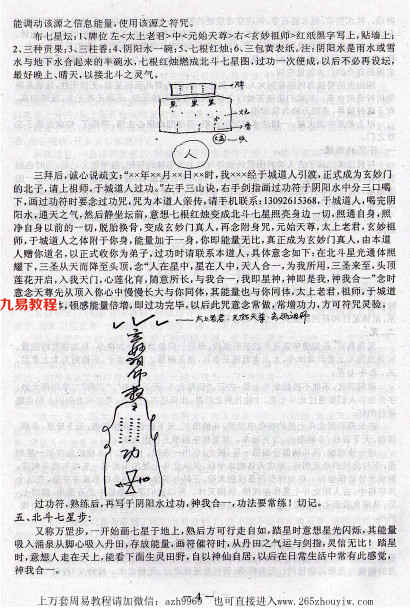 能调动该源之信息能量，使用该源之符咒。
布七星坛：1、牌位 左<太上老君>中<元始天尊>右<玄妙祖师>红纸黑字写上，贴墙上；
2、三种贡果；3、三柱香；4、阴阳水一碗；5、七根红烛；6、三包黄表纸，注：阴阳水是雨水或雪
水与地下水合起来的半碗水，七根红烛燃成北斗七星图，过功一次便成，以后不必再设坛，
最好晚上、晴天，以接北斗之灵气。
人
三拜后，诚心说疏文：“××年××月××日××时，我×××经于城道人引渡，正式成为玄妙门
的北子，请上祖师，于城道人过功。”左手三山诀，右手剑指画过功符于阴阳水中分三口喝
下，画过功符时要念过功咒，咒为本道人亲传，请手机联系：13092615368，于城道人，喝完阴
阳水，通天之气，然后静坐坛前，意想七根红烛变成北斗七星照亮身边一切，照通自身，照
净自身以前的一切，脱胎换骨，变成玄妙门真人，再念附身咒，元始天尊，太上老君，玄妙祖
师，于城道人之体附于你身，能量加于一身，你即能量无比，真正成为玄妙门真人，由本道
人赠你道名，以正式收你为弟子，过功时请联系本道人，具体意念如下：在北斗星光通体照
耀下，三圣从天而降至头顶，念“人在星中，星在人中，天人合一，为我所用，三圣来至，头顶
莲花开启，入我天门，心莲化育，随意所长，与我合一，我即是神，神即是我，神我合一”念时
意念天尊先从顶入你心中慢慢长大与你同体，其能量也与你同体，太上老君，祖师，于城道
九易教程
，顿感能量倍增，即过功完毕，以后此咒意念常做，常增功力，方可符咒灵验。
功
过功符，熟练后，再写于阴阳水过功，神我合一，功法要常练！切记。
五、北斗七星步：
又称万罡步，一开始画七星于地上，熟后方可行走自如，踏星时意想星光闪烁，其能量
吸入涌泉从脚心吸入丹田，存放能量，画符催符时，从丹田之气运与剑指，灵信无比！踏星
时，意想人走在天上，能看下面生灵田野，自以神仙自居，以后在日常生活中常有此感觉，
神我合一。
— 4 —
上万套周易教程请加微信：azh9969 也可直接进入www.265zhouyiw.com